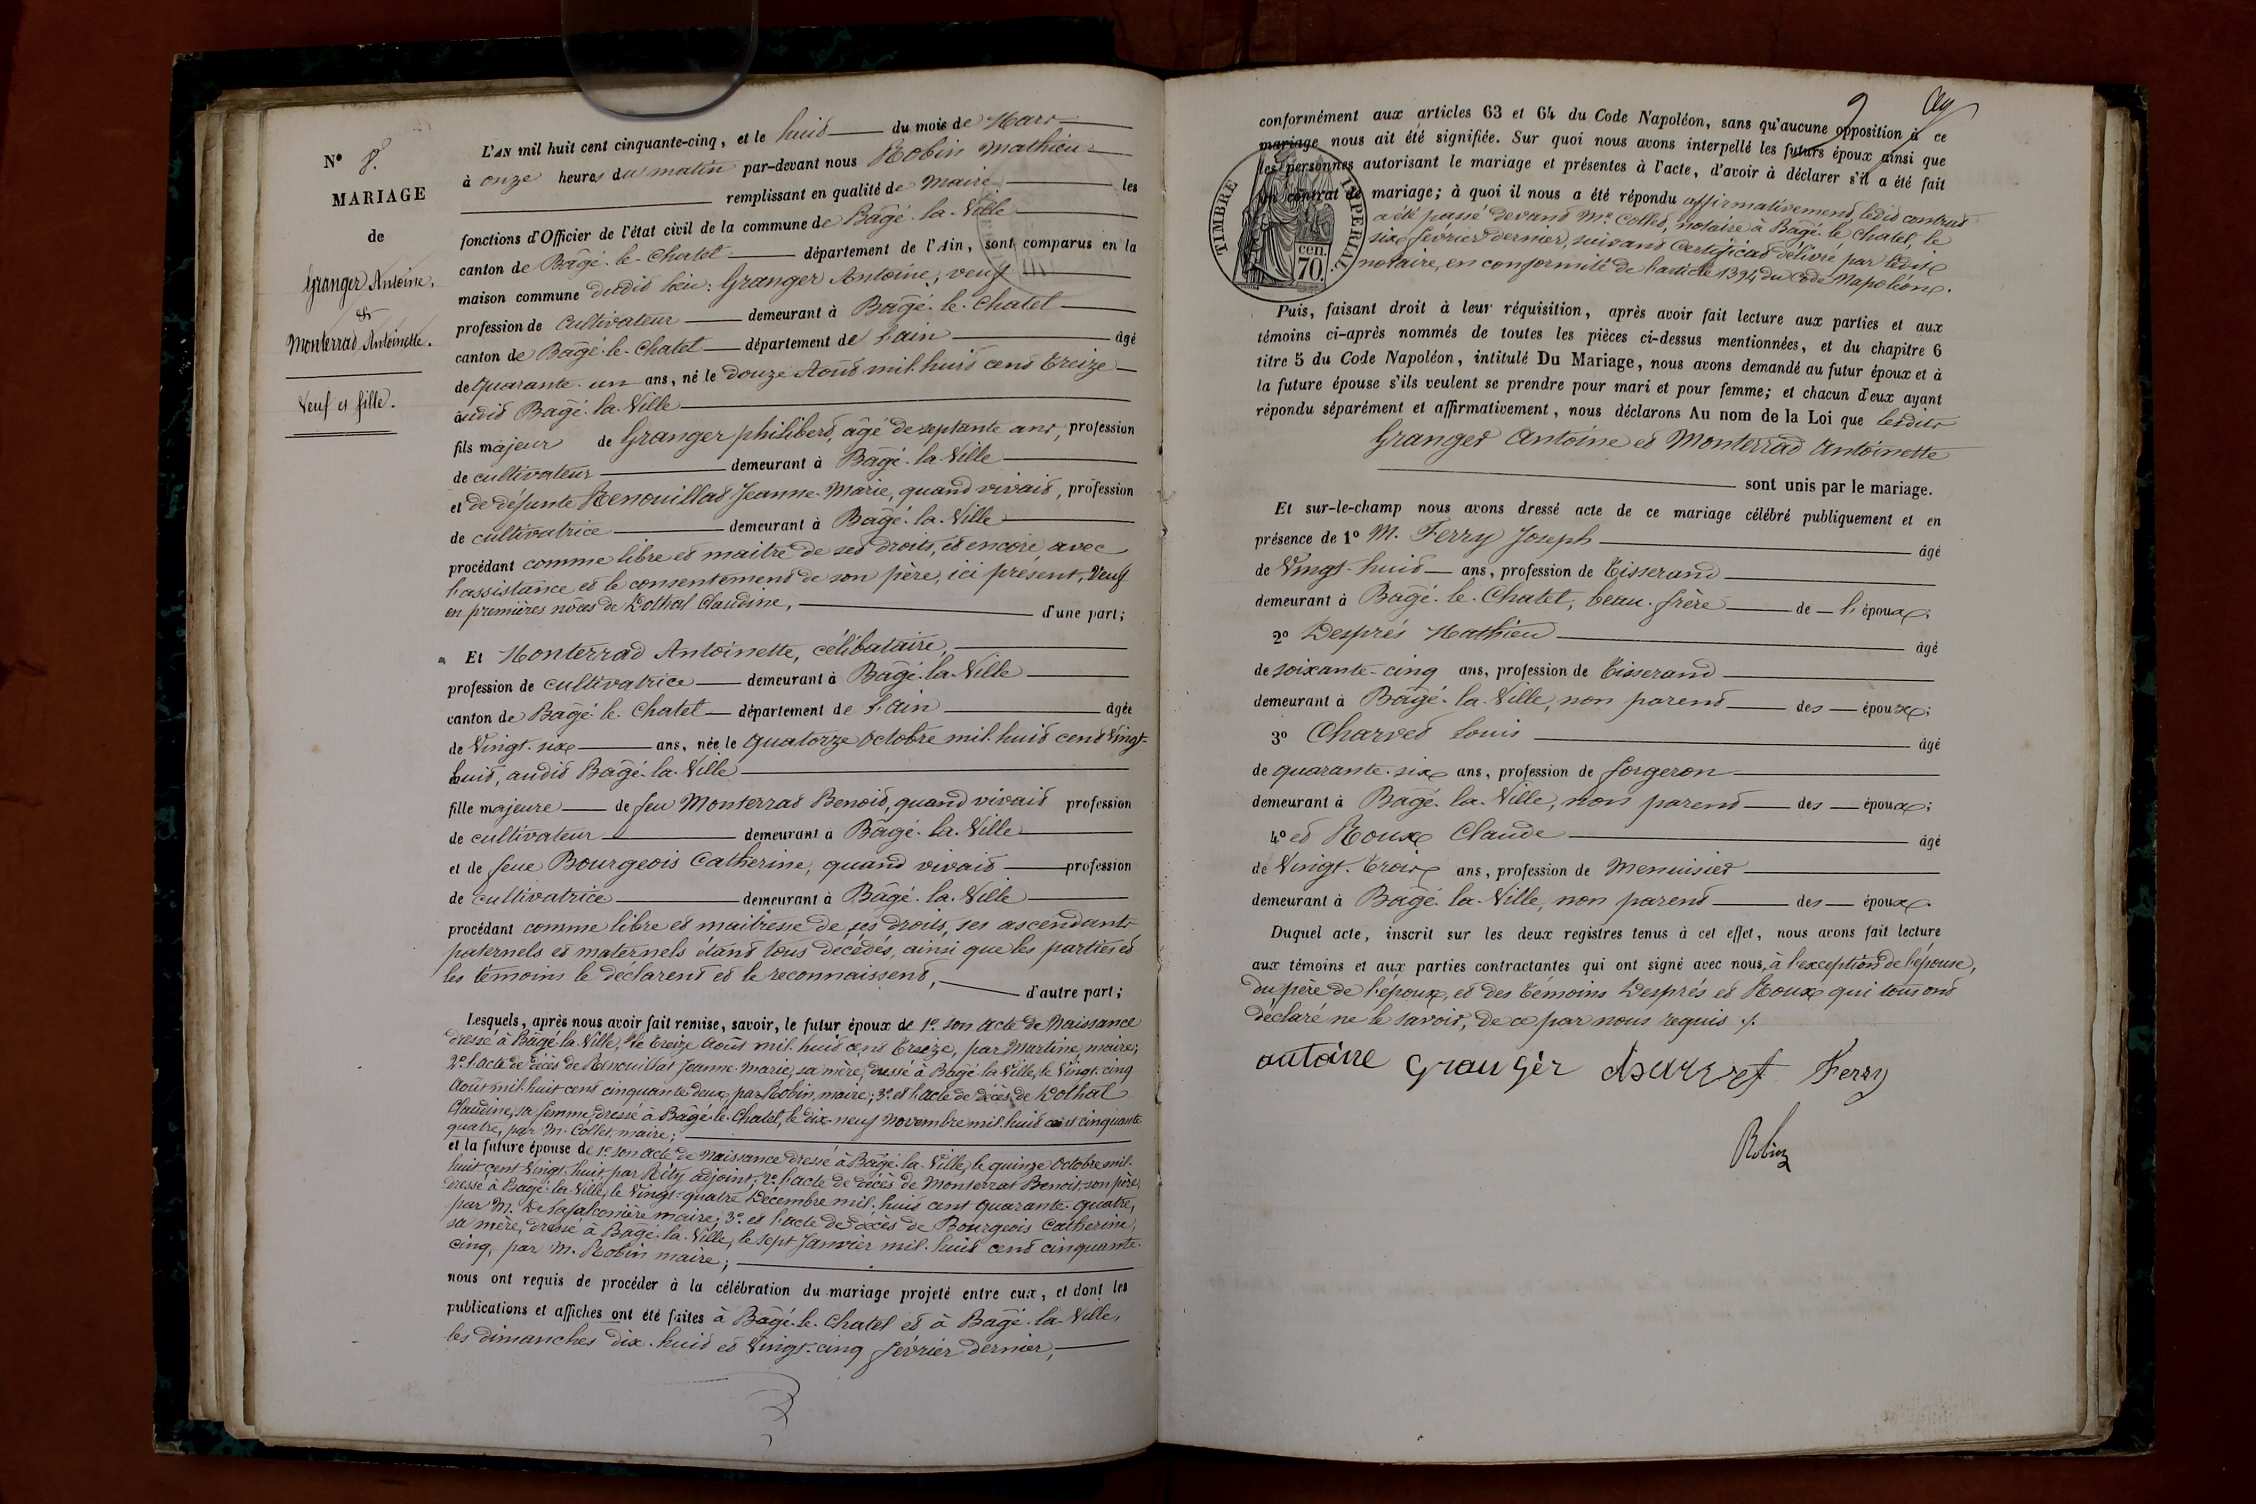 N° 8.
MARIAGE
de
Granger Antoine,
&
Monterrad Antoinette.
Veuf et fille.
L'AN mil huit cent cinquante-cinq, et le huit du mois de Mars
à onze heures du matin par-devant nous Robin Mathieu
remplissant en qualité de Maire les
fonctions d'Officier de l'état civil de la commune de Bâgé-la-Ville
canton de Bâgé-le-Chatel département de l'Ain, sont comparus en la
maison commune dudit lieu: Granger Antoine, veuf
profession de Cultivateur demeurant à Bâgé-le-Chatel
canton de Bâgé-le-Chatel département de l'ain âgé
de Quarante-un ans, né le douze Août mil huit cent treize
audit Bâgé-la-Ville
fils majeur de Granger philibert, âgé de septante ans, profession
de cultivateur demeurant à Bâgé-la-Ville
et de défunte Renouillat Jeanne-Marie, quand vivait, profession
de cultivatrice demeurant à Bâgé-la-Ville
procédant comme libre et maitre de ses droits, et encore avec
l'assistance et le consentement de son père, ici présent, Veuf
en premières nôces de Dothal Claudine, d'une part;
Et Monterrad Antoinette, célibataire,
profession de cultivatrice demeurant à Bâgé-la-Ville
canton de Bâgé-le-Chatel département de l'ain âgée
de Vingt-six ans, née le Quatorze Octobre mil huit cent Vingt-
huit, audit Bâgé-la-Ville
fille majeure de feu Monterrat Benoit, quand vivait profession
de cultivateur demeurant à Bâgé-la-Ville
et de feue Bourgeois Catherine, quand vivait profession
de cultivatrice demeurant à Bâgé-la-Ville
procédant comme libre et maitresse de ses droits, ses ascendants
paternels et maternels étant tous décédés, ainsi que les parties et
les témoins le déclarent et le reconnaissent, d'autre part;
Lesquels, après nous avoir fait remise, savoir, le futur époux de 1° son acte de Naissance
dressé à Bâgé-la-Ville, le treize Août mil huit cent treize, par Martine, maire;
2° l'acte de décès de Renouillat Jeanne-Marie, sa mère, dressé à Bâgé-la-Ville, le Vingt-cinq
Août mil huit cent cinquante deux, par Robin, maire; 3° et l'acte de décès de Dothal
Claudine, sa femme, dressé à Bâgé-le-Chatel, le dix-neuf Novembre mil huit cent cinquante
quatre, par M. Collet, maire;
et la future épouse de 1° son acte de Naissance dressé à Bâgé-la-Ville, le quinze Octobre mil
huit cent Vingt-huit, par Réty adjoint; 2° l'acte de décès de Monterrat Benoit, son père,
dressé à Bâgé-la-Ville, le Vingt-quatre Décembre mil huit cent quarante-quatre,
par M. Delafalconière maire; 3° et l'acte de décès de Bourgeois Catherine,
sa mère, dressé à Bâgé-la-Ville, le sept Janvier mil huit cent cinquante-
cinq, par M. Robin maire;
nous ont requis de procéder à la célébration du mariage projeté entre eux, et dont les
publications et affiches ont été faites à Bâgé-le-Chatel et à Bâgé-la-Ville,
les dimanches dix-huit et Vingt-cinq février dernier,
9
conformément aux articles 63 et 64 du Code Napoléon, sans qu'aucune opposition à ce
mariage nous ait été signifiée. Sur quoi nous avons interpellé les futurs époux ainsi que
les personnes autorisant le mariage et présentes à l'acte, d'avoir à déclarer s'il a été fait
un contrat de mariage; à quoi il nous a été répondu affirmativement, ledit contrat
a été passé devant Me. Collet, notaire à Bâgé-le-Chatel, le
six février dernier, suivant Certificat délivré par ledit
notaire, en conformité de l'article 1394 du Code Napoléon.
TIMBRE IMPERIAL
cen.
70.
Puis, faisant droit à leur réquisition, après avoir fait lecture aux parties et aux
témoins ci-après nommés de toutes les pièces ci-dessus mentionnées, et du chapitre 6
titre 5 du Code Napoléon, intitulé Du Mariage, nous avons demandé au futur époux et à
la future épouse s'ils veulent se prendre pour mari et pour femme; et chacun d'eux ayant
répondu séparément et affirmativement, nous déclarons Au nom de la Loi que lesdits
Granger Antoine et Monterrad Antoinette
sont unis par le mariage.
Et sur-le-champ nous avons dressé acte de ce mariage célébré publiquement et en
présence de 1° M. Ferry Joseph âgé
de Vingt-huit ans, profession de Tisserand
demeurant à Bâgé-le-Chatel, beau-frère de l' époux;
2° Desprès Mathieu âgé
de soixante-cinq ans, profession de Tisserand
demeurant à Bâgé-la-Ville, non parent des époux;
3° Charvet Louis âgé
de quarante-six ans, profession de forgeron
demeurant à Bâgé-la-Ville, non parent des époux;
4° et Roux Claude âgé
de Vingt-trois ans, profession de Menuisier
demeurant à Bâgé-la-Ville, non parent des époux.
Duquel acte, inscrit sur les deux registres tenus à cet effet, nous avons fait lecture
aux témoins et aux parties contractantes qui ont signé avec nous, à l'exception de l'épouse,
du père de l'époux, et des témoins Desprès et Roux qui tous ont
déclaré ne le savoir, de ce par nous requis ./.
antoine Granger charvet Ferry
Robin